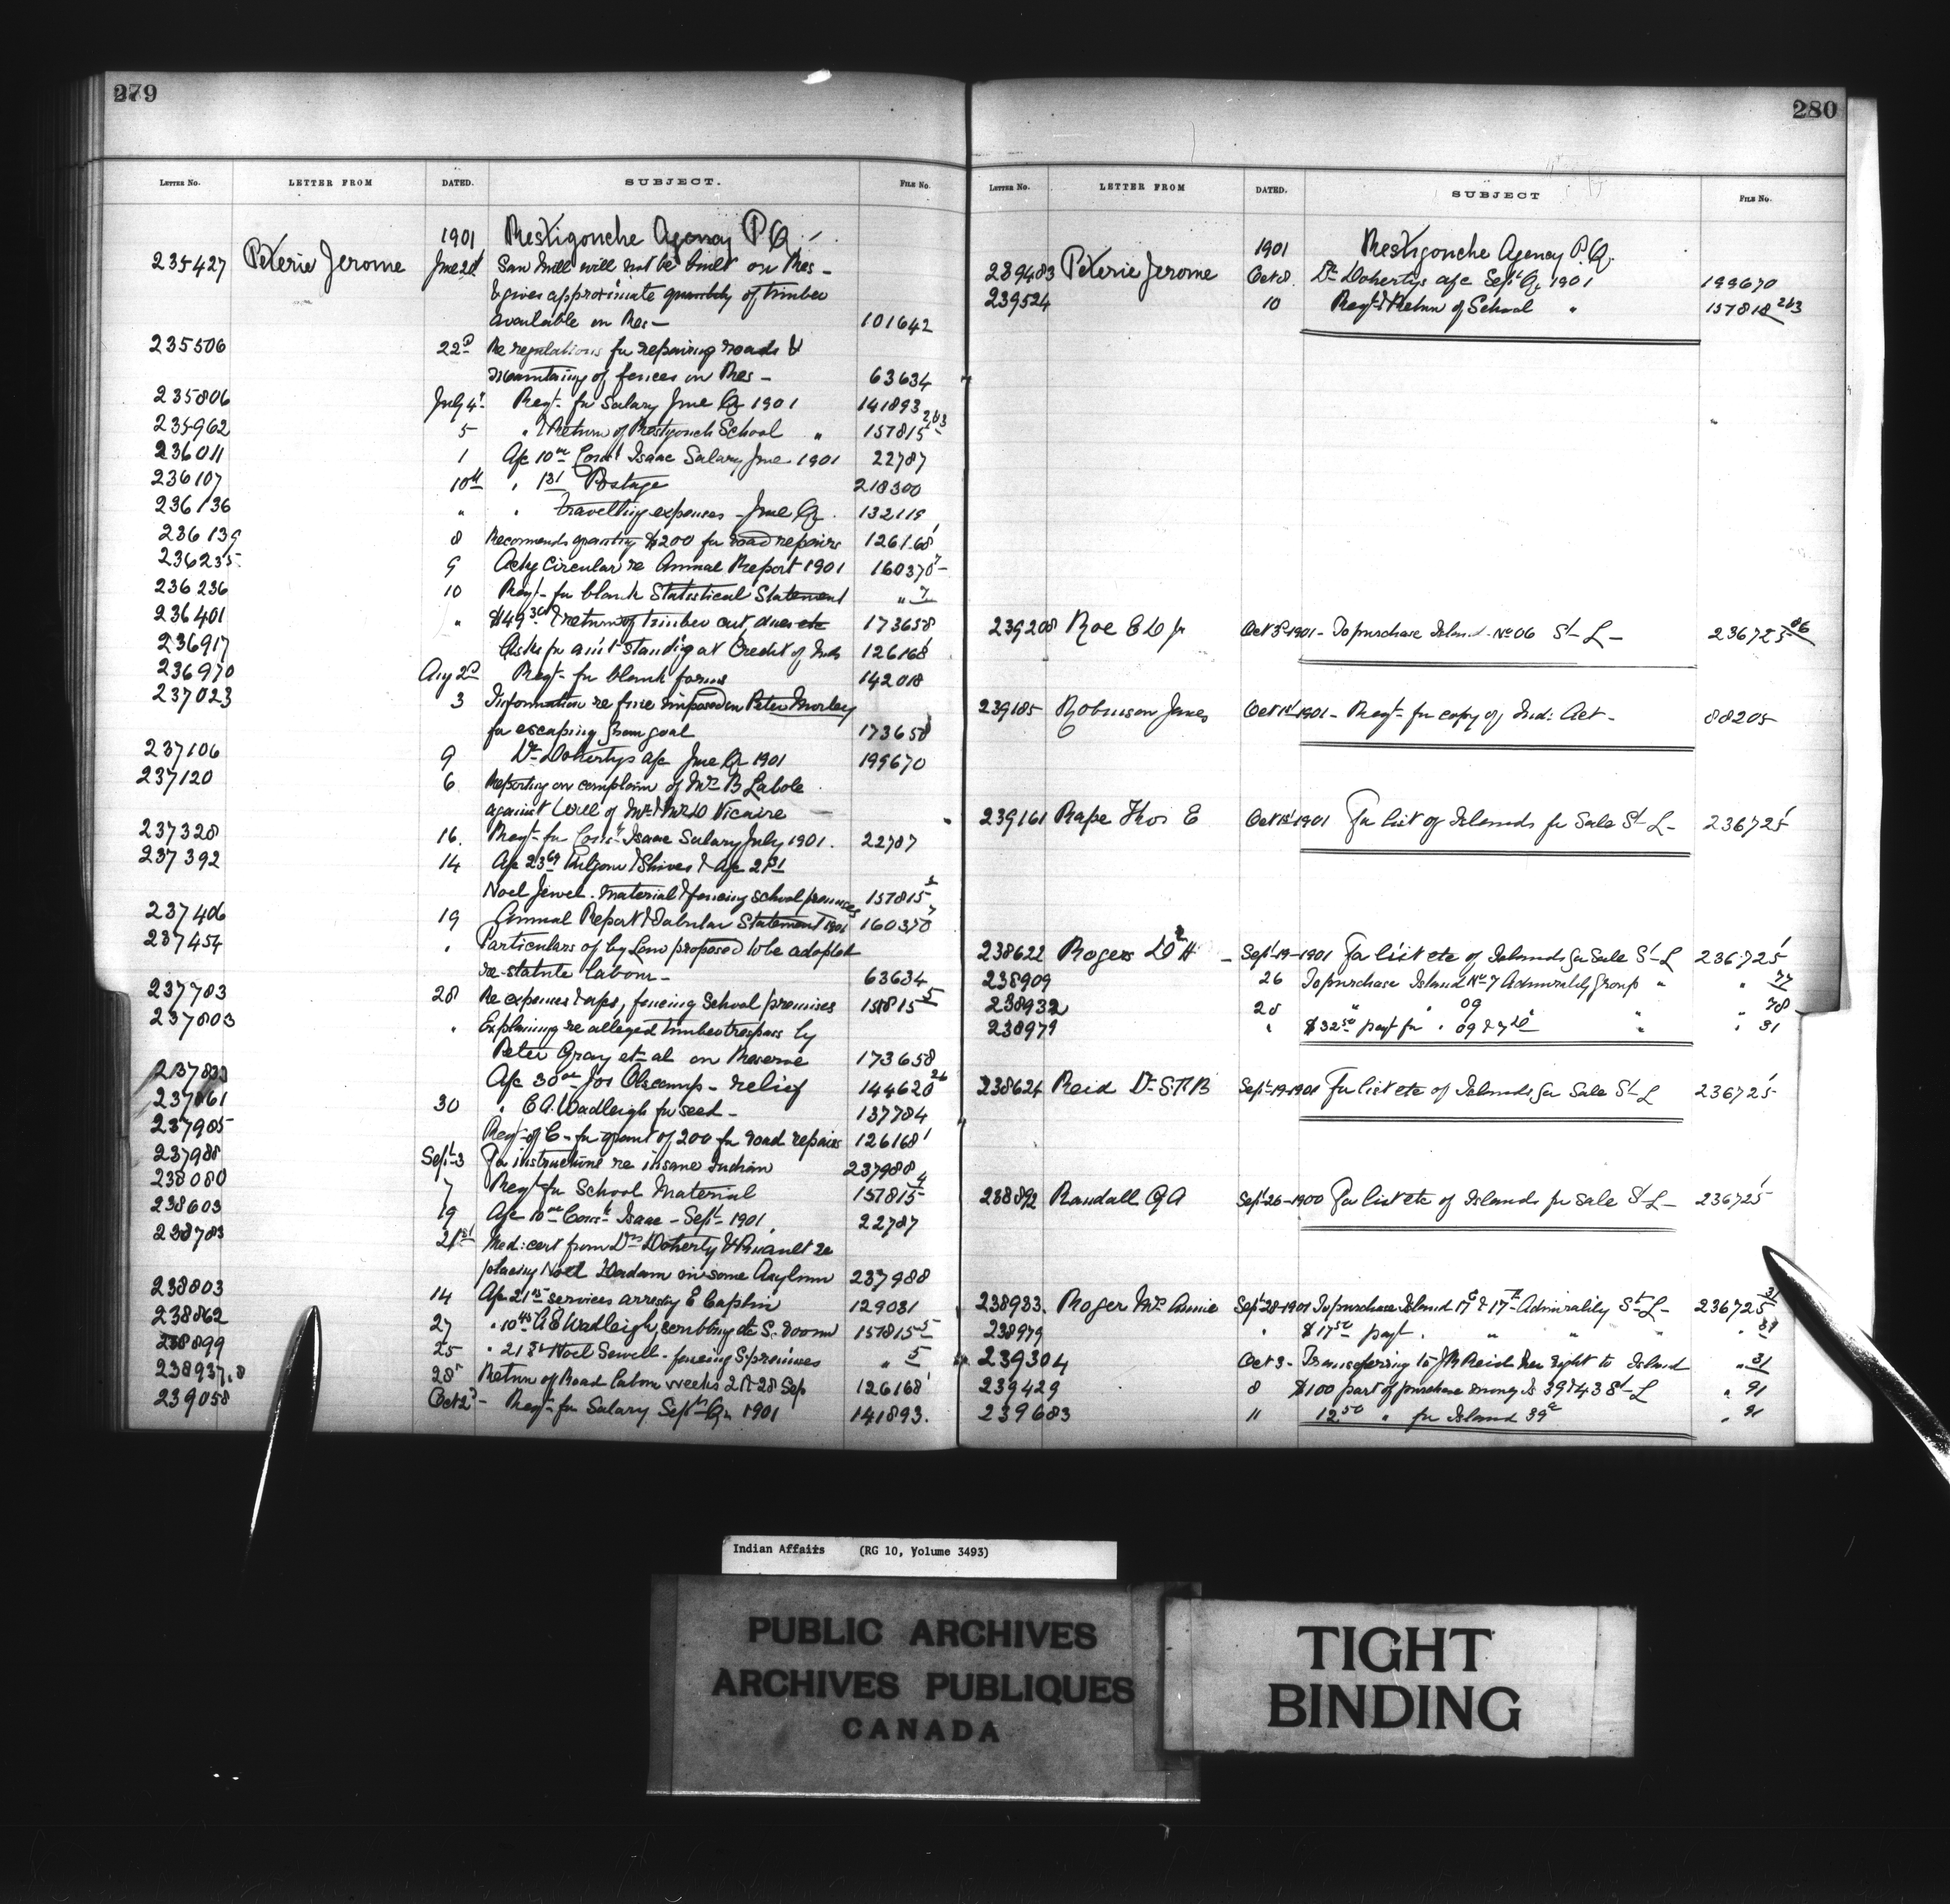 279
LETTER No. LETTER FROM DATED. SUBJECT. FILE No.
1901 Restigouche Agency P Q
235427 Jerome June 21 Saw Mill will not be built on Res -
& gives approximate quantity of timber
available on Res - 101642
235506 22nd Re regulations for repairing roads &
maintaing of fences on Res - 63634
235806 July 4 Reqt. for Salary June Qr 1901 141893
235962 5 " & Return of School " 157815 2&3
236011 1 A/c 10.00 Const Isaac Salary June 1901 22787
236107 10th " Postage 218300
236136 " " Travelling expenses - June Qr. 132119
236139 8 Recommends granting $200 for road repairs 126168
236235 9 Ackg Circular re Annual Report 1901 160370
236236 10 Reqt. for blank Statistical Statement "
236401 " & return of timber cut dues etc 173658
236917 Asks for am't standig at Credit of Inds 126168
236970 Aug 2nd Reqt. for blank forms 142018
237023 3 Information re fine imposed on Peter Morley
for escaping from goal 173658
237106 9 Dr Dohertys a/c June Qr 1901 199670
237120 6 Reporting on complain of Mrs B Labole
against Will of Vicaire -
237328 16. Reqt. for Const Isaac Salary July 1901. 22787
237392 14 & Shives & A/c
Noel Jewel. Material & fencing school premises 157815
237406 19 Annual Report & Tabular Statement 1901 160370
237454 " Particulars of by Law proposed to be adopted
re-statute labour - 63634
237783 28 Re expenses, fencing School premises
237803 " Explaining re alleged timber trespass by
Peter Gray et-al on Reserve 173658
A/c 30.00 Jos - relief 144620
30 " E A. Wadleigh for seed - 137784
237985 Reqt of C - for grant of 200 for road repairs 126168
237988 Sept-3 For instructions re insane Indian 237988
238080 7 Reqt for School Material 157815
238603 19 A/c 10.00 Const. Isaac - Sept 1901. 22787
238783 21st Med: cert from Drs Doherty & re
placing Noel in some Asylum 237988
238803 14 A/c services arrestg E Caplin 129031
238862 27 " Wadleigh, scrubbing etc S. room 157815 5
238899 25 " Noel Sewell. fencing S. premises " 5
238937.8 28 Return of Road labour weeks 21 & 28 Sep 126168
239058 Oct 2 Reqt. for Salary Sept Qr 1901 141893.
280
LETTER No. LETTER FROM DATED. SUBJECT FILE No.
1901 Restigouche Agency P. Q.
239483 Jerome Oct 8. Dr Dohertys a/c Sept Qr 1901 199670
239524 10 Reqt & Return of School " 2&3
239208 Roe Oct 3rd 1901 - To purchase Island No 06 St L -
239185 Robinson James Oct 1st 1901 - Reqt. for copy of Ind: Act - 88205
239161 Rape Thos E Oct 1st 1901 For list of Islands for Sale St L - 236725
238622 Rogers - Sept 19-1901 For list etc of Islands for Sale St L 236725
238909 26 To purchase Island No 7 Admirality Group " " 77
238932 28 " " 09 " " 78
238979 " $32.50 payt for " " " 31
238624 Reid Dr Sept-19-1901 For list etc of Islands for Sale St L 236725
238892 Randall G A Sept 26-1900 For list etc of Islands for Sale St L - 236725
238933. Roger Mrs Annie Sept 28-1901 To purchase Island Admirality St L - 236725 31
238979 " $17.50 payt. " " "
239304 Oct 3 - Transferring to Reid her right to Island " 31
239429 8 $100 part of purchase money Is 39 & 43 St L " 91
239683 11 12.50 " for Island 39 " 91
Indian Affairs (RG 10, Volume 3493)
PUBLIC ARCHIVES
ARCHIVES PUBLIQUES
CANADA
TIGHT
BINDING